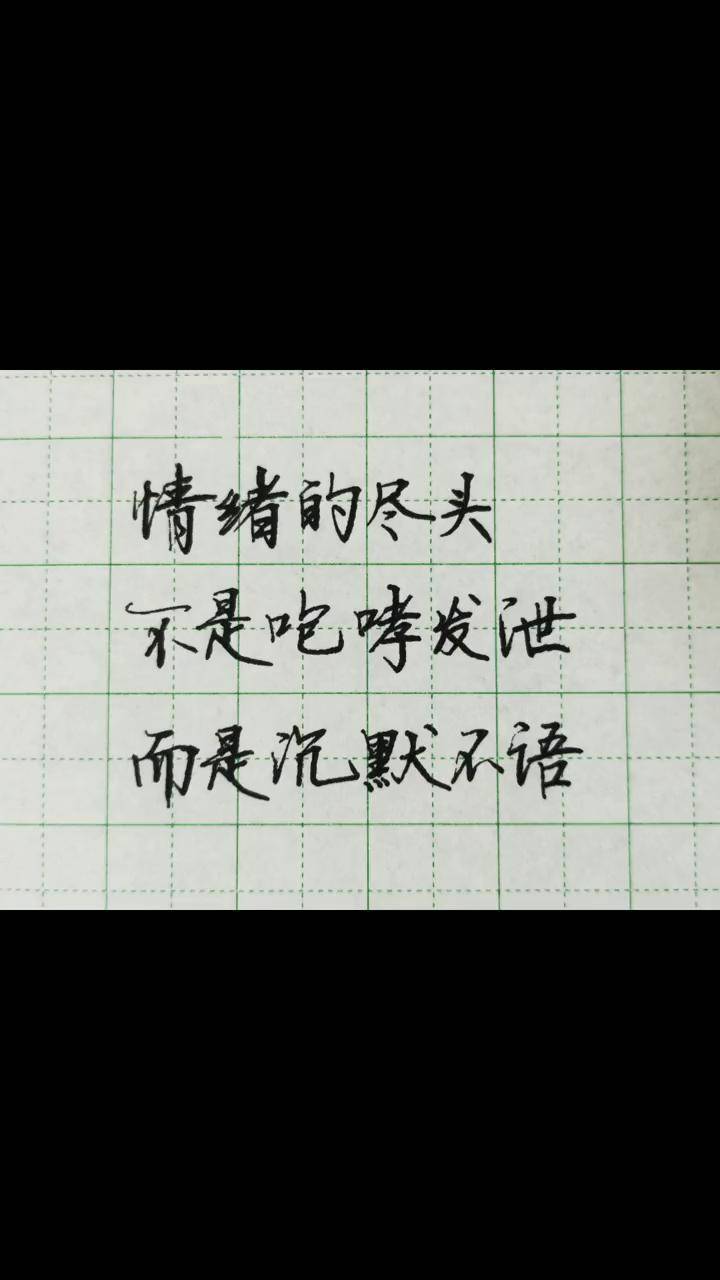 情绪的尽头
不是咆哮发泄
而是沉默不语